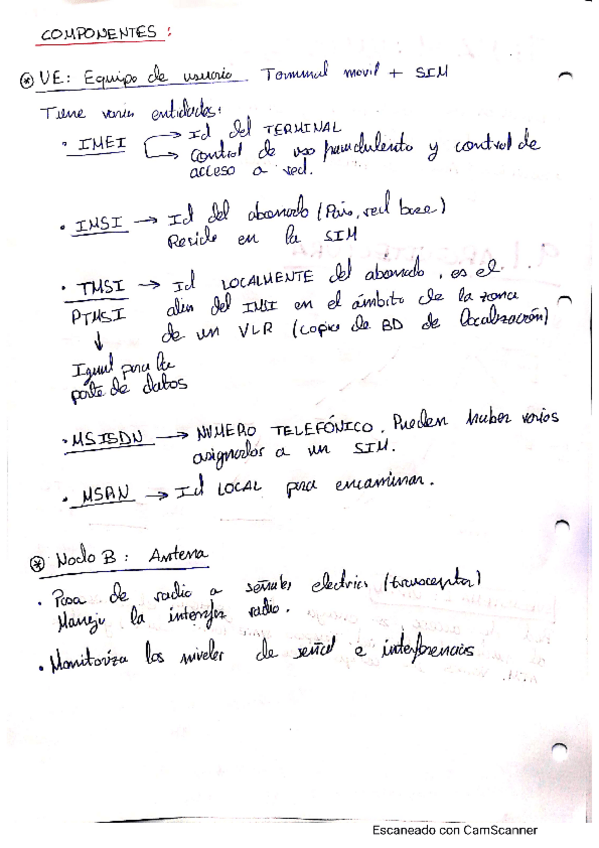 COMPONENTES :
⊛ UE: Equipo de usuario. Terminal movil + SIM
Tiene varias entidades:
• IMEI → Id del TERMINAL
→ Control de uso fraudulento y control de
acceso a red.
• IMSI → Id del abonado (Pais, red base)
Reside en la SIM
• TMSI → Id LOCALMENTE del abonado, es el
PTMSI alias del IMSI en el ámbito de la zona
de un VLR (copia de BD de localización)
↓
Igual para la
parte de datos
• MSISDN → NUMERO TELEFÓNICO. Pueden haber varios
asignados a un SIM.
• MSRN → Id LOCAL para encaminar.
⊛ Nodo B : Antena
• Pasa de radio a señales electricas (transceptor)
Maneja la interfaz radio.
• Monitoriza los niveles de señal e interferencias
Escaneado con CamScanner